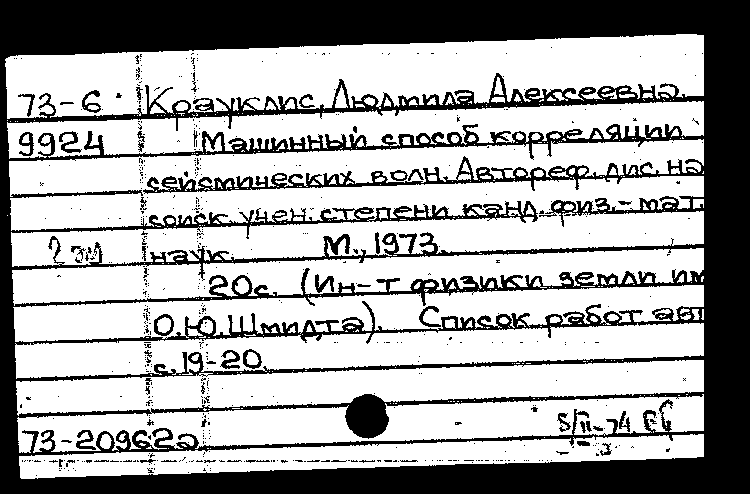 73-6 Крауклис, Людмила Алексеевна.
9924 Машинный способ корреляции
сейсмических волн. Автореф. дис. на
соиск. учен. степени канд. физ.-мат.
2 эк наук. М., 1973.
20с. (Ин-т физики земли им
О.Ю. Шмидта). Список работ авт
с. 19-20.
73-20962а 5/II-74.